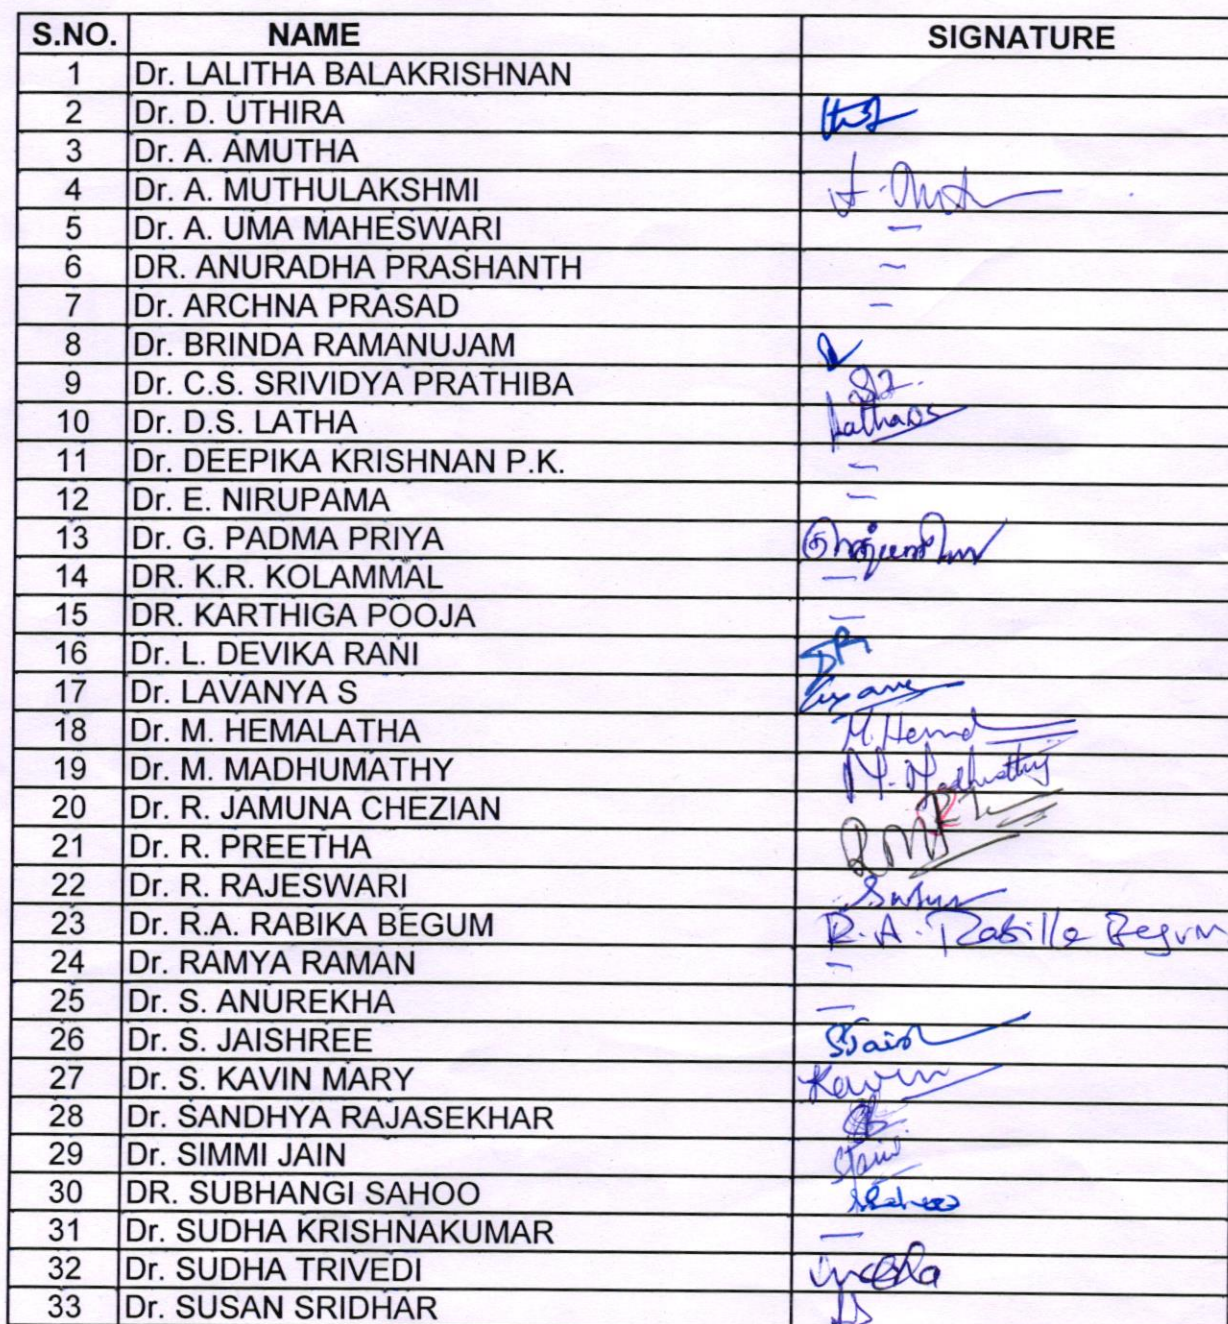 S.NO. NAME SIGNATURE
1 Dr. LALITHA BALAKRISHNAN
2 Dr. D. UTHIRA
3 Dr. A. AMUTHA
4 Dr. A. MUTHULAKSHMI
5 Dr. A. UMA MAHESWARI –
6 DR. ANURADHA PRASHANTH –
7 Dr. ARCHNA PRASAD –
8 Dr. BRINDA RAMANUJAM
9 Dr. C.S. SRIVIDYA PRATHIBA
10 Dr. D.S. LATHA LathaDS
11 Dr. DEEPIKA KRISHNAN P.K. –
12 Dr. E. NIRUPAMA –
13 Dr. G. PADMA PRIYA
14 DR. K.R. KOLAMMAL –
15 DR. KARTHIGA POOJA –
16 Dr. L. DEVIKA RANI
17 Dr. LAVANYA S
18 Dr. M. HEMALATHA M. Hemal
19 Dr. M. MADHUMATHY
20 Dr. R. JAMUNA CHEZIAN
21 Dr. R. PREETHA
22 Dr. R. RAJESWARI
23 Dr. R.A. RABIKA BEGUM R.A. Rabika Begum
24 Dr. RAMYA RAMAN –
25 Dr. S. ANUREKHA –
26 Dr. S. JAISHREE
27 Dr. S. KAVIN MARY Kavin
28 Dr. SANDHYA RAJASEKHAR
29 Dr. SIMMI JAIN SJain
30 DR. SUBHANGI SAHOO SSahoo
31 Dr. SUDHA KRISHNAKUMAR –
32 Dr. SUDHA TRIVEDI
33 Dr. SUSAN SRIDHAR